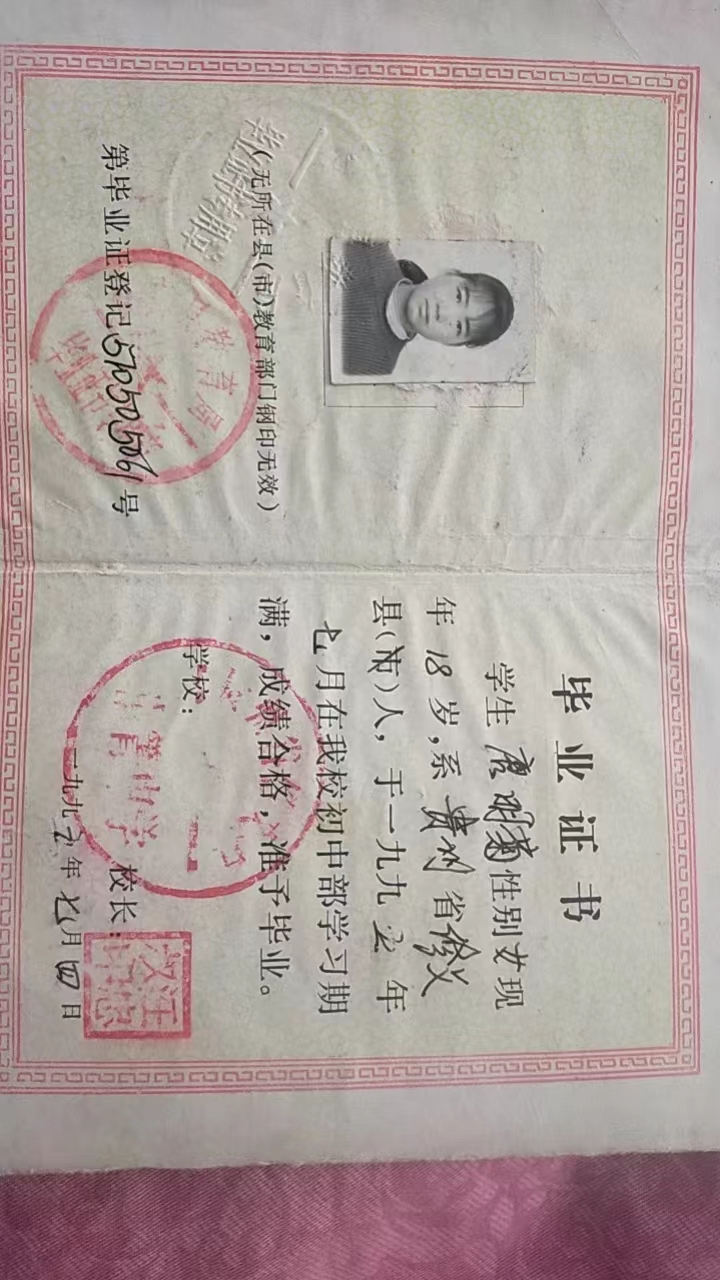 (无所在县(市)教育部门钢印无效)
第毕业证登记570505061号
教育局
毕业证书
学生唐明菊性别女现
年18岁,系贵州省修义
县(市)人,于一九九五年
七月在我校初中部学习期
满,成绩合格,准予毕业。
学校:
校长:
一九九五年七月四日